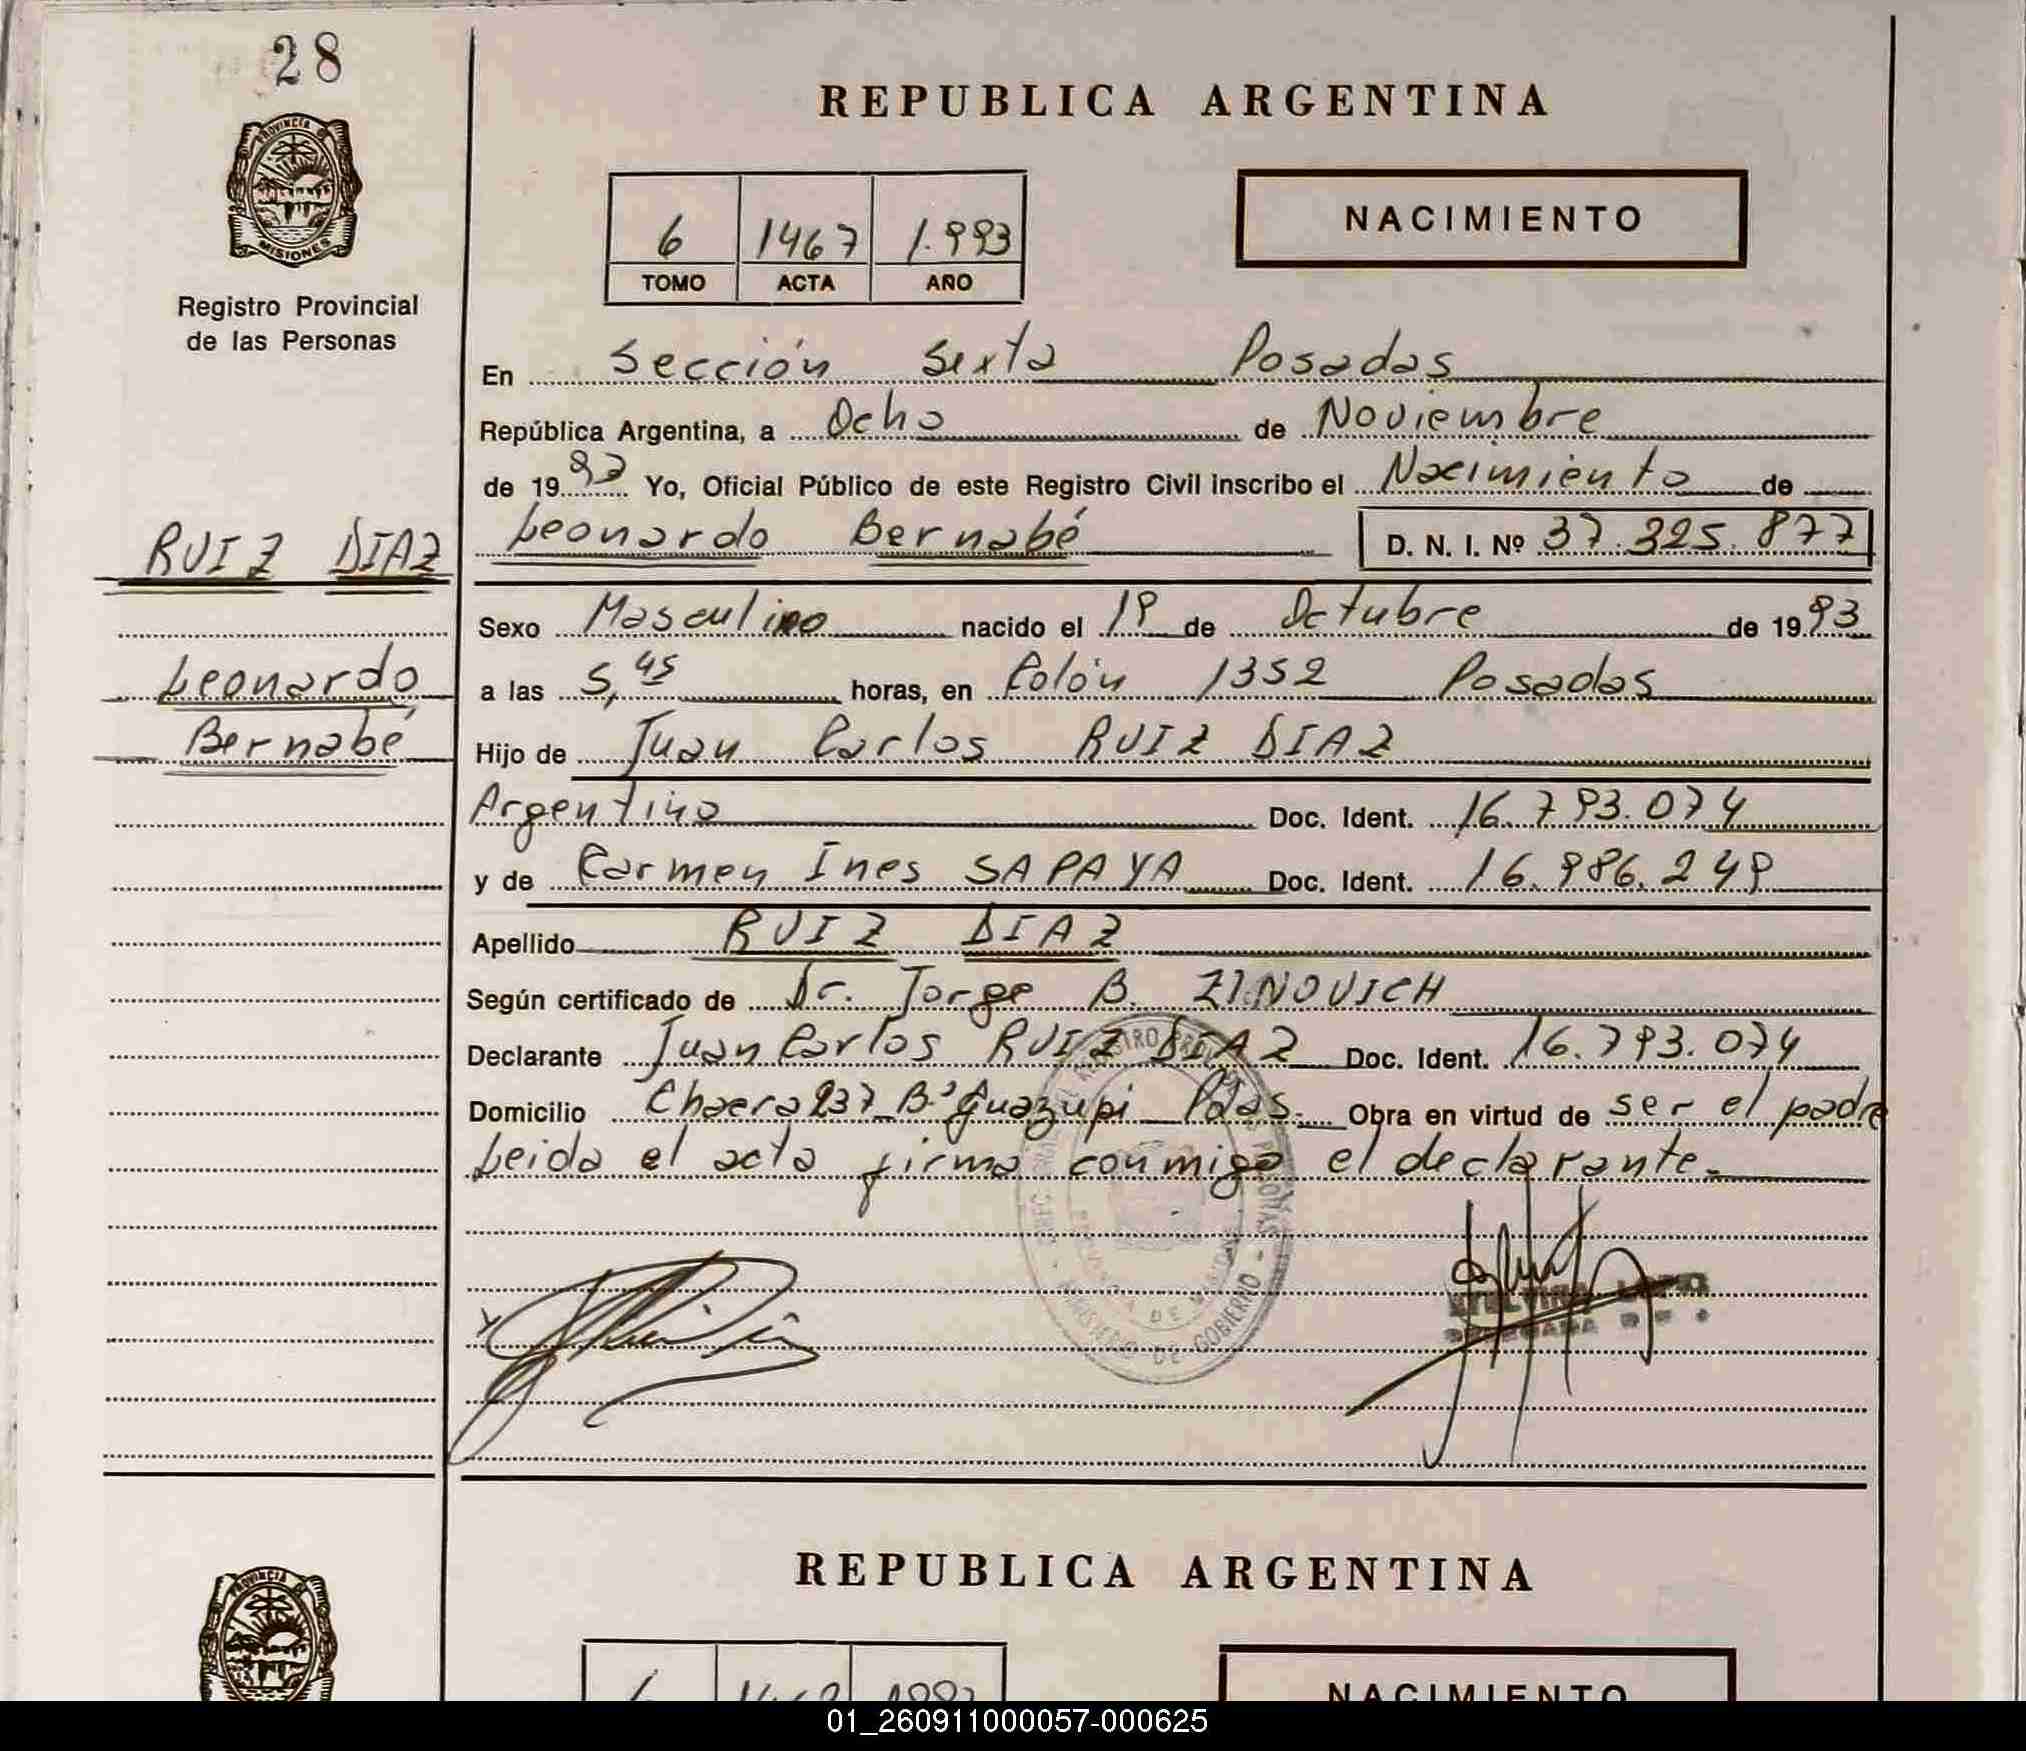 28
PROVINCIA DE
MISIONES
Registro Provincial
de las Personas
REPUBLICA ARGENTINA
6 1467 1.993
TOMO ACTA AÑO
NACIMIENTO
En Sección Sexta Posadas
República Argentina, a Ocho de Noviembre
de 1993 Yo, Oficial Público de este Registro Civil inscribo el Nacimiento de
RUIZ DIAZ
Leonardo Bernabé D. N. I. Nº 37.325.877
Sexo Masculino nacido el 19 de Octubre de 1993
Leonardo
a las 5,45 horas, en Colón 1352 Posadas
Bernabé
Hijo de Juan Carlos RUIZ DIAZ
Argentino Doc. Ident. 16.793.074
y de Carmen Ines SAPAYA Doc. Ident. 16.986.249
Apellido RUIZ DIAZ
Según certificado de Dr. Jorge B. ZINOVICH
Declarante Juan Carlos RUIZ DIAZ Doc. Ident. 16.793.074
Domicilio Chacra 237 Bº Guazupi Pdas. Obra en virtud de ser el padre
Leida el acta firma conmigo el declarante.
MINISTERIO DE GOBIERNO
REPUBLICA ARGENTINA
PROVINCIA
6
NACIMIENTO
01_260911000057-000625